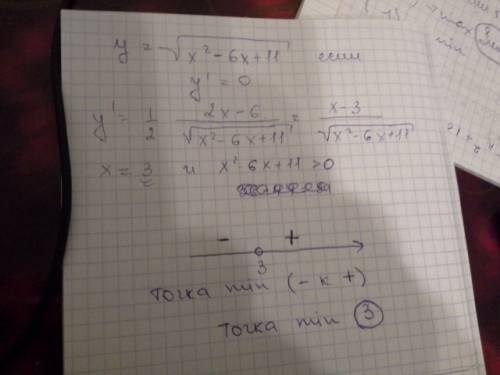 y = √(x² - 6x + 11)
y' = 0
y' = 1/2 (2x - 6)/√(x² - 6x + 11) = (x - 3)/√(x² - 6x + 11)
x = 3 и x² - 6x + 11 > 0
- +
3
точка min (- к +)
точка min 3